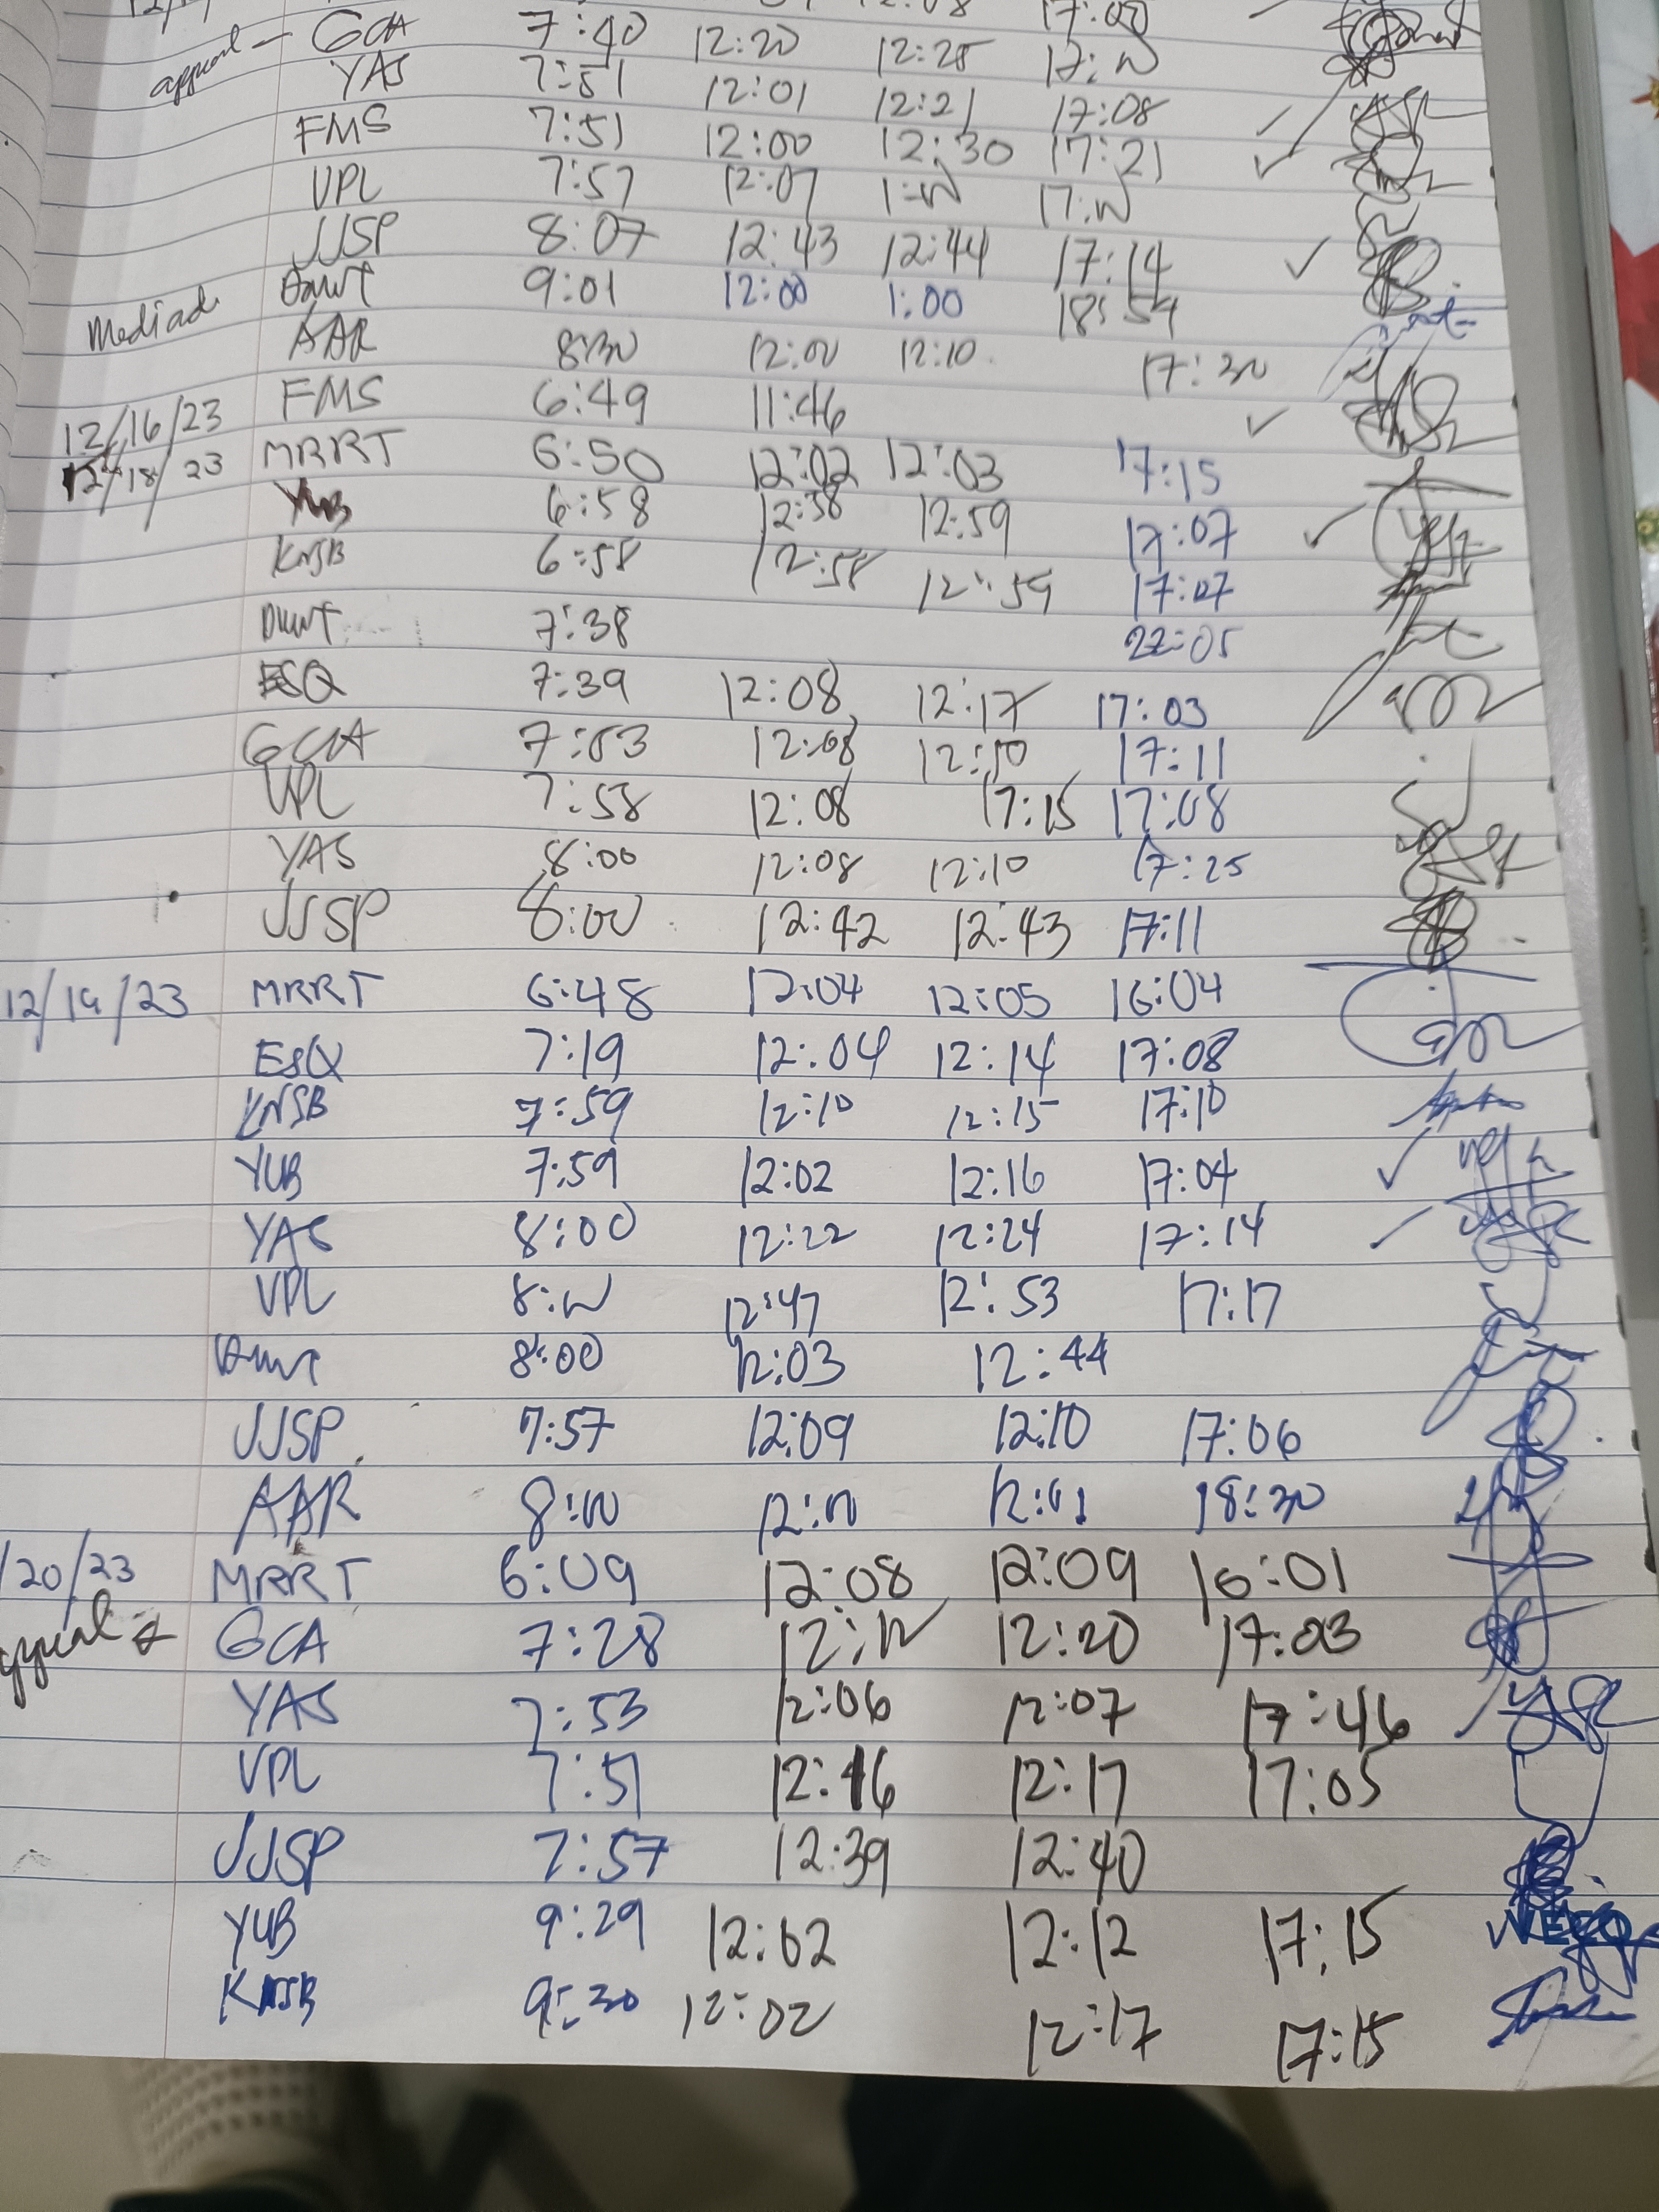 17:00
appeal - GCA 7:40 12:20 12:25 17:00
YAS 7:51 12:01 12:21 17:08
FMS 7:51 12:00 12:30 17:21
VPL 7:57 12:07 1:00 17:00
JJSP 8:07 12:43 12:44 17:14
9:01 12:00 1:00 18:54
AAR 8:30 12:00 12:10 17:30
12/16/23 FMS 6:49 11:46
12/18/23 MRRT 6:50 12:02 12:03 17:15
YUB 6:58 12:58 12:59 17:07
KNSB 6:58 12:58 12:59 17:07
7:38 22:05
ESQ 7:39 12:08 12:17 17:03
GCA 7:53 12:08 12:10 17:11
VPL 7:58 12:08 17:15 17:08
YAS 8:00 12:08 12:10 17:25
JJSP 8:00 12:42 12:43 17:11
12/19/23 MRRT 6:48 12:04 12:05 16:04
ESQ 7:19 12:04 12:14 17:08
KNSB 7:59 12:10 12:15 17:10
YUB 7:59 12:02 12:16 17:04
YAS 8:00 12:22 12:24 17:14
VPL 8:00 12:47 12:53 17:17
8:00 12:03 12:44
JJSP 7:57 12:09 12:10 17:06
AAR 8:00 12:00 12:01 18:30
/20/23 MRRT 6:09 12:08 12:09 16:01
GCA 7:28 12:10 12:20 17:03
YAS 7:53 12:06 12:07 17:46
VPL 7:51 12:16 12:17 17:05
JJSP 7:57 12:39 12:40
YUB 9:29 12:02 12:12 17:15
KNSB 9:30 12:02 12:17 17:15